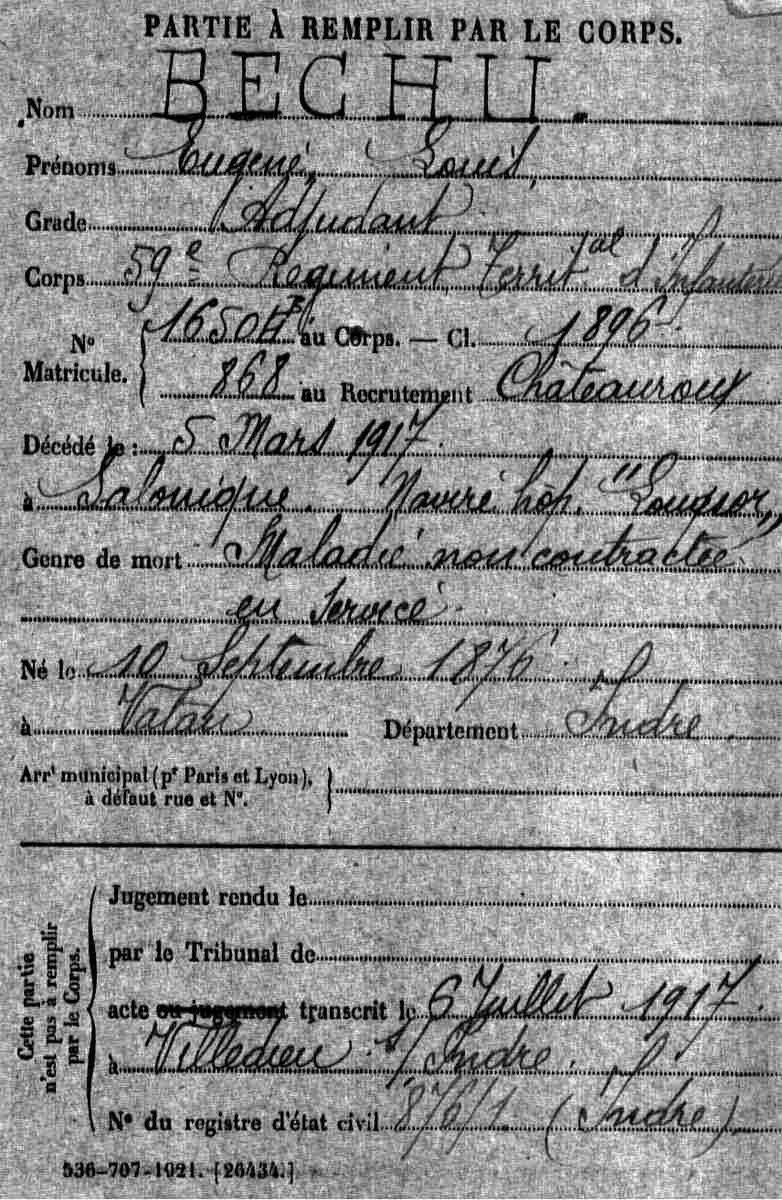 PARTIE À REMPLIR PAR LE CORPS.
Nom BECHU.
Prénoms Eugène, Louis,
Grade Adjudant
Corps 59e Régiment Territal d'Infanterie
No Matricule. 16504 au Corps. — Cl. 1896.
868 au Recrutement Châteauroux
Décédé le : 5 Mars 1917.
à Salonique. Navire hôp. "Louqsor"
Genre de mort Maladie non contractée
en service.
Né le 10 Septembre 1876.
à Vatan Département Indre.
Arrt municipal (pr Paris et Lyon),
à défaut rue et No.
Cette partie n'est pas à remplir par le Corps.
Jugement rendu le
par le Tribunal de
acte ou jugement transcrit le 6 Juillet 1917.
à Villedieu s/ Indre.
No du registre d'état civil 876/1 (Indre)
536-707-1921. [26434.]